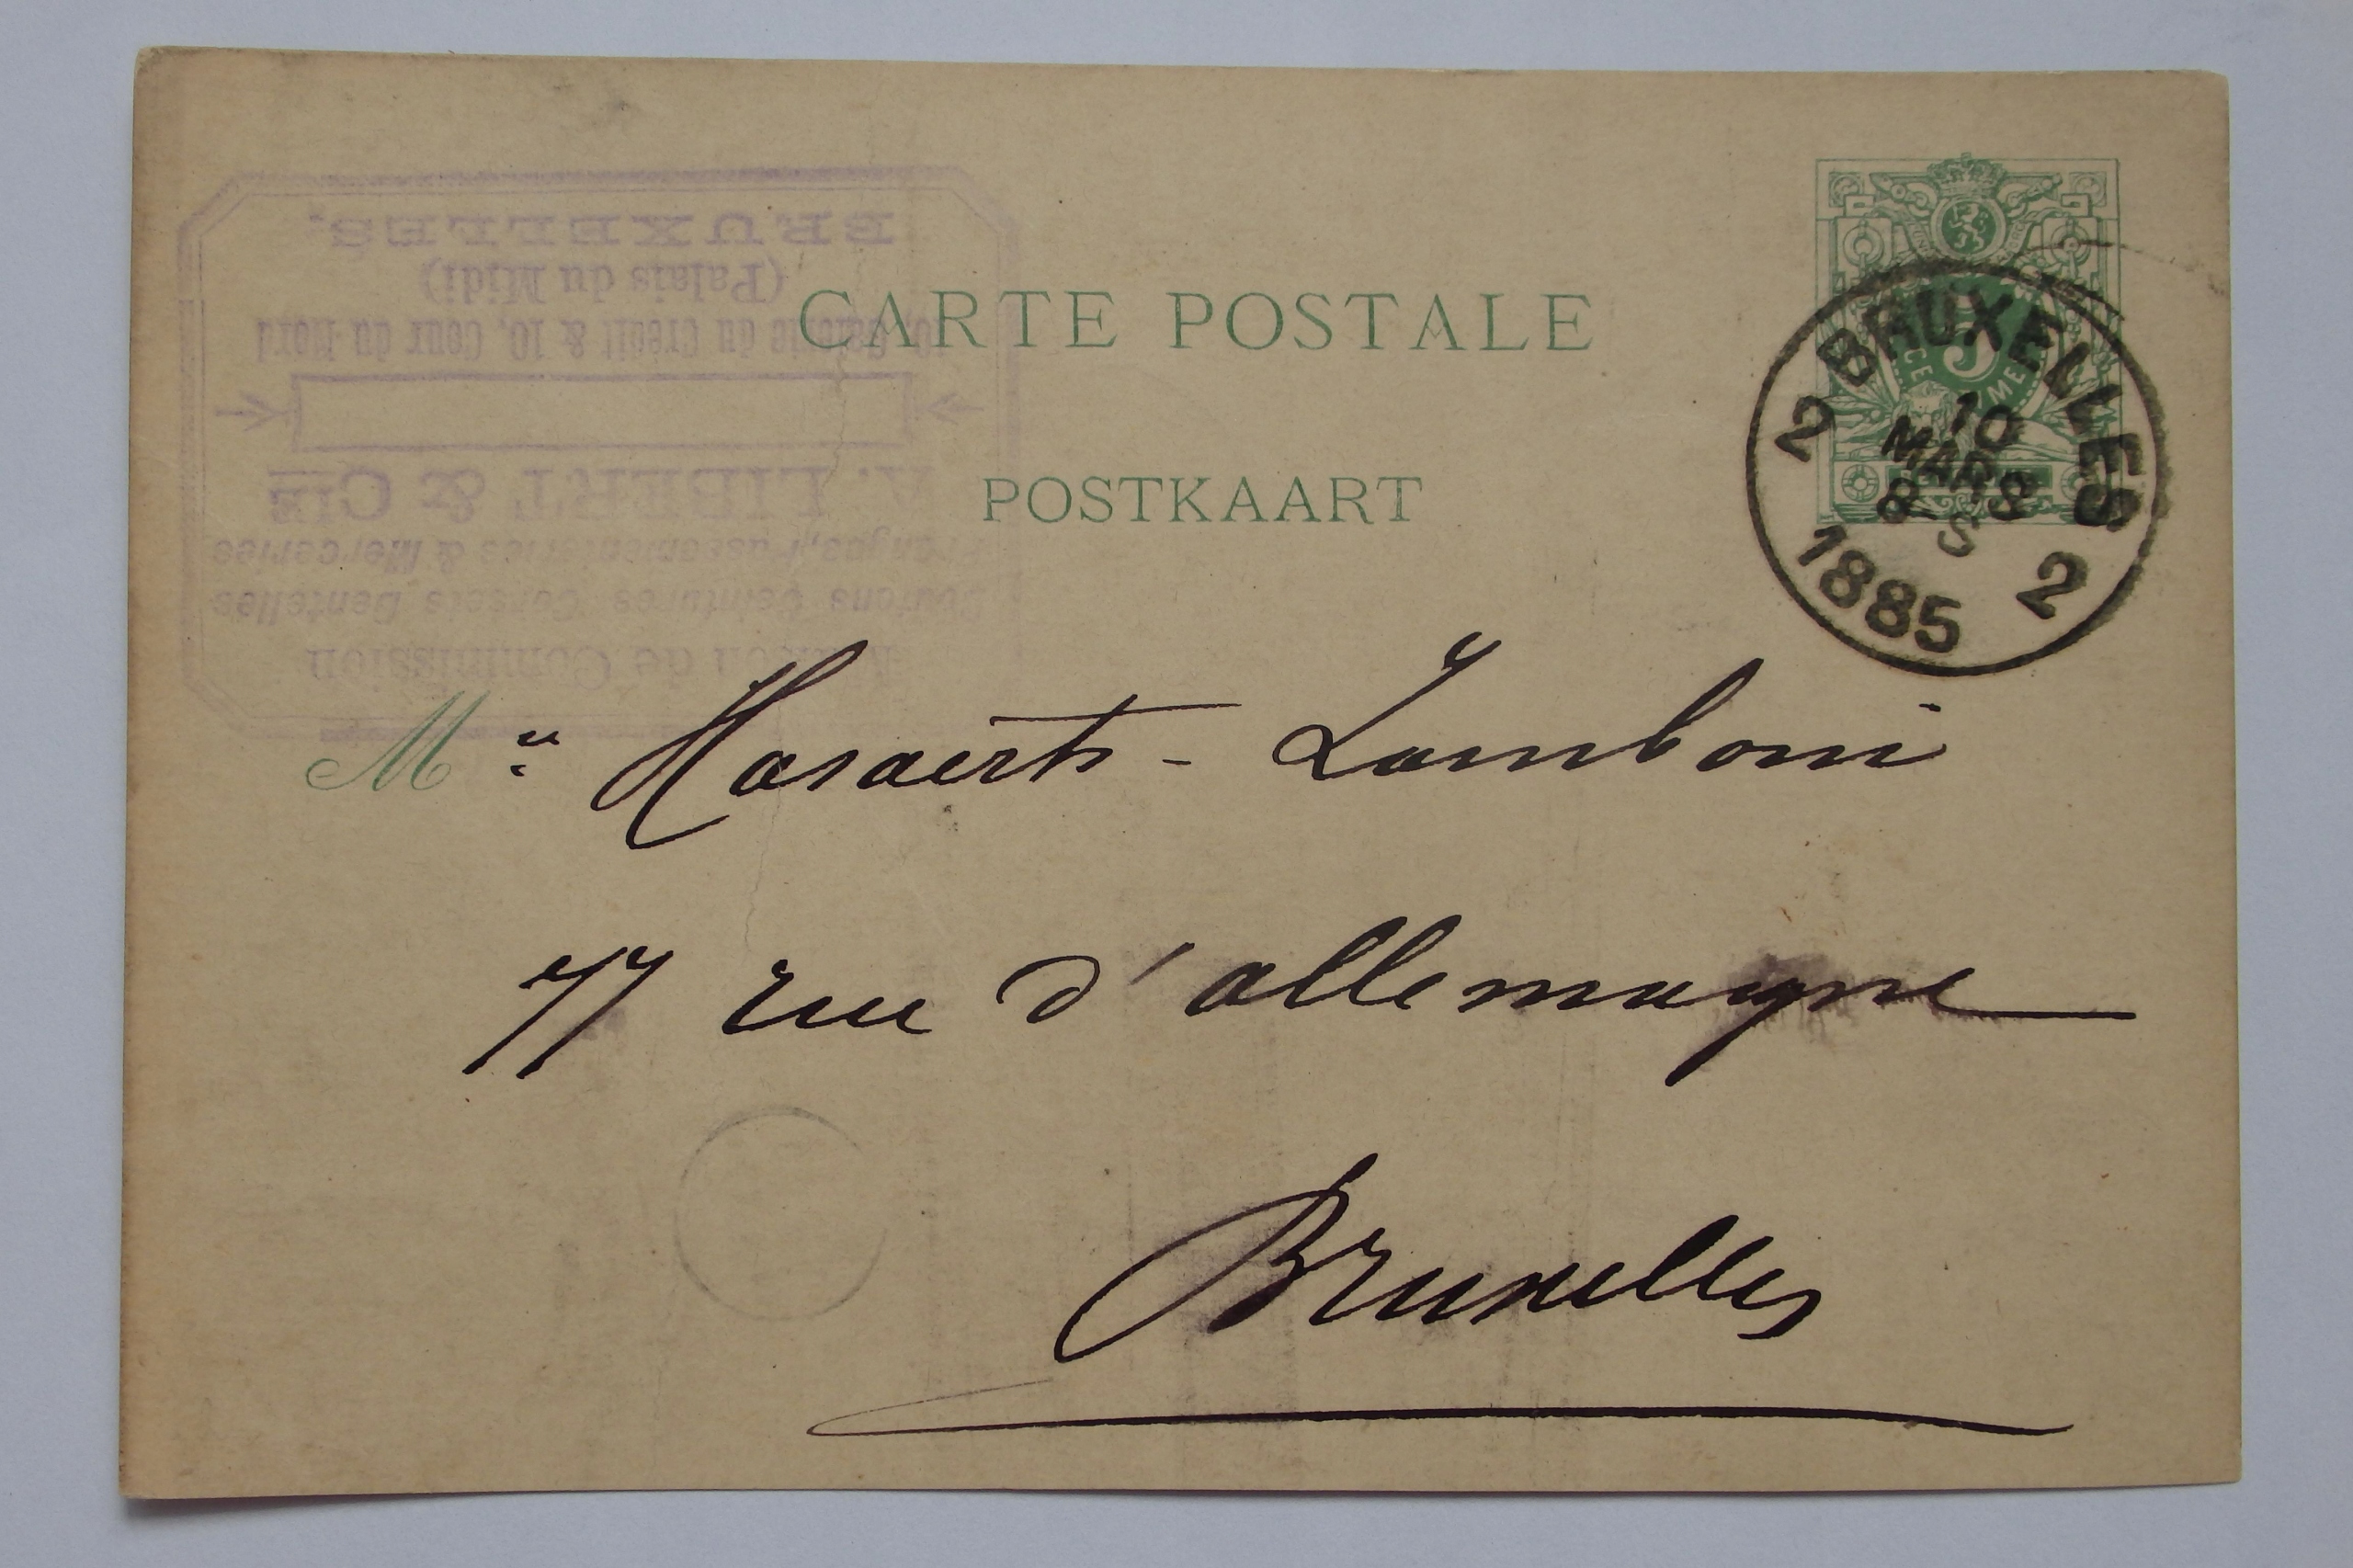 CARTE POSTALE
POSTKAART
BRUXELLES
10
MARS
8 S
2 2
1885
5
CE ME
BRUXELLES.
(Palais du Midi)
10, Galerie du Crédit & 10, Cour du Nord
LIBERT & Cie
Franges, Passementeries & Merceries
Ceintures Corsets Dentelles
Maison de Commission
M
Hasaerts - Zamboni
77 rue d'allemagne
Bruxelles